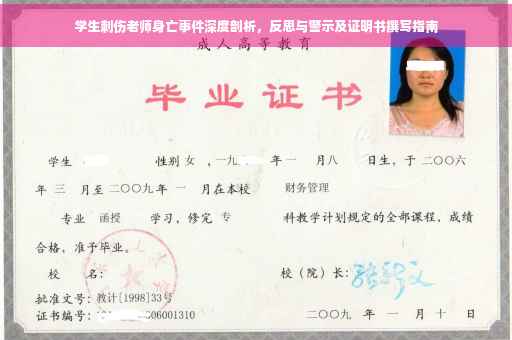 学生刺伤老师身亡事件深度剖析，反思与警示及证明书撰写指南
成人高等教育
毕业证书
学生 性别 女 ，一九 年 一 月八 日生，于 二〇〇六
年 三 月至 二〇〇九 年 一 月在本校 财务管理
专业 函授 学习，修完 专 科教学计划规定的全部课程，成绩
合格，准予毕业。
校 名： 校（院）长：
批准文号：教计[1998]33号
证书编号：1 06001310 二〇〇九 年 一 月 十 日